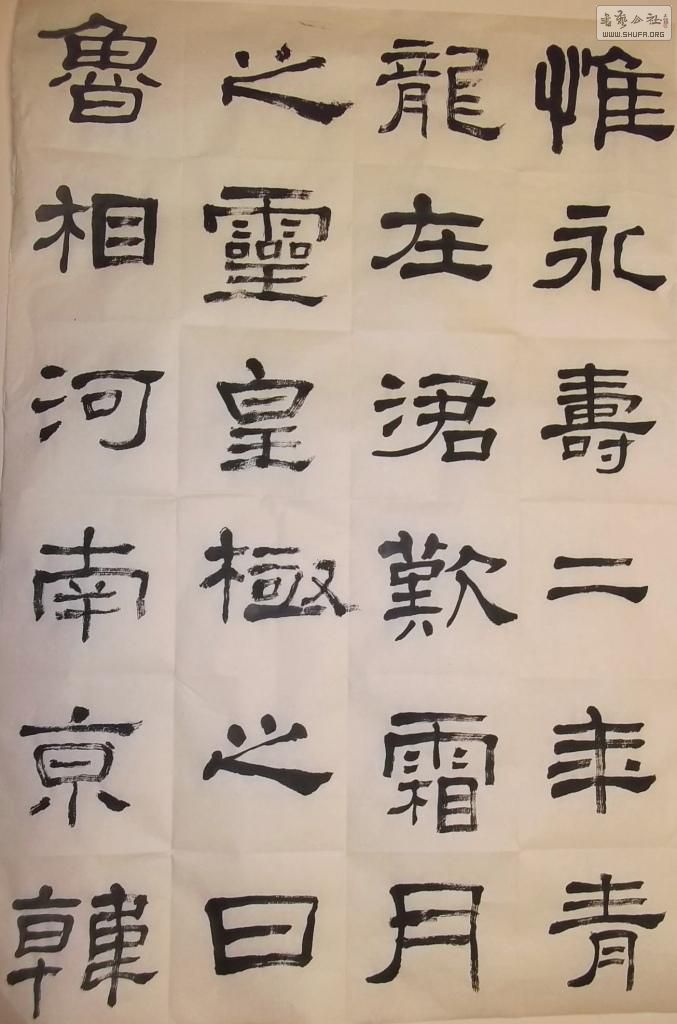 惟永壽二年青
龍在涒歎霜月
之靈皇極之日
魯相河南京韓
書藝公社
WWW.SHUFA.ORG